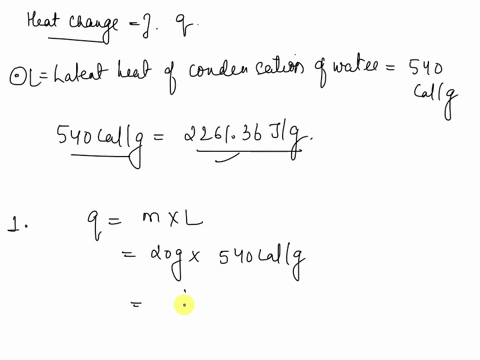 Heat change = q.
⊙ L = Latent heat of condensation of water = 540
Cal/g
540 cal/g = 2261.36 J/g.
1. q = m × L
= 20g × 540 cal/g
=